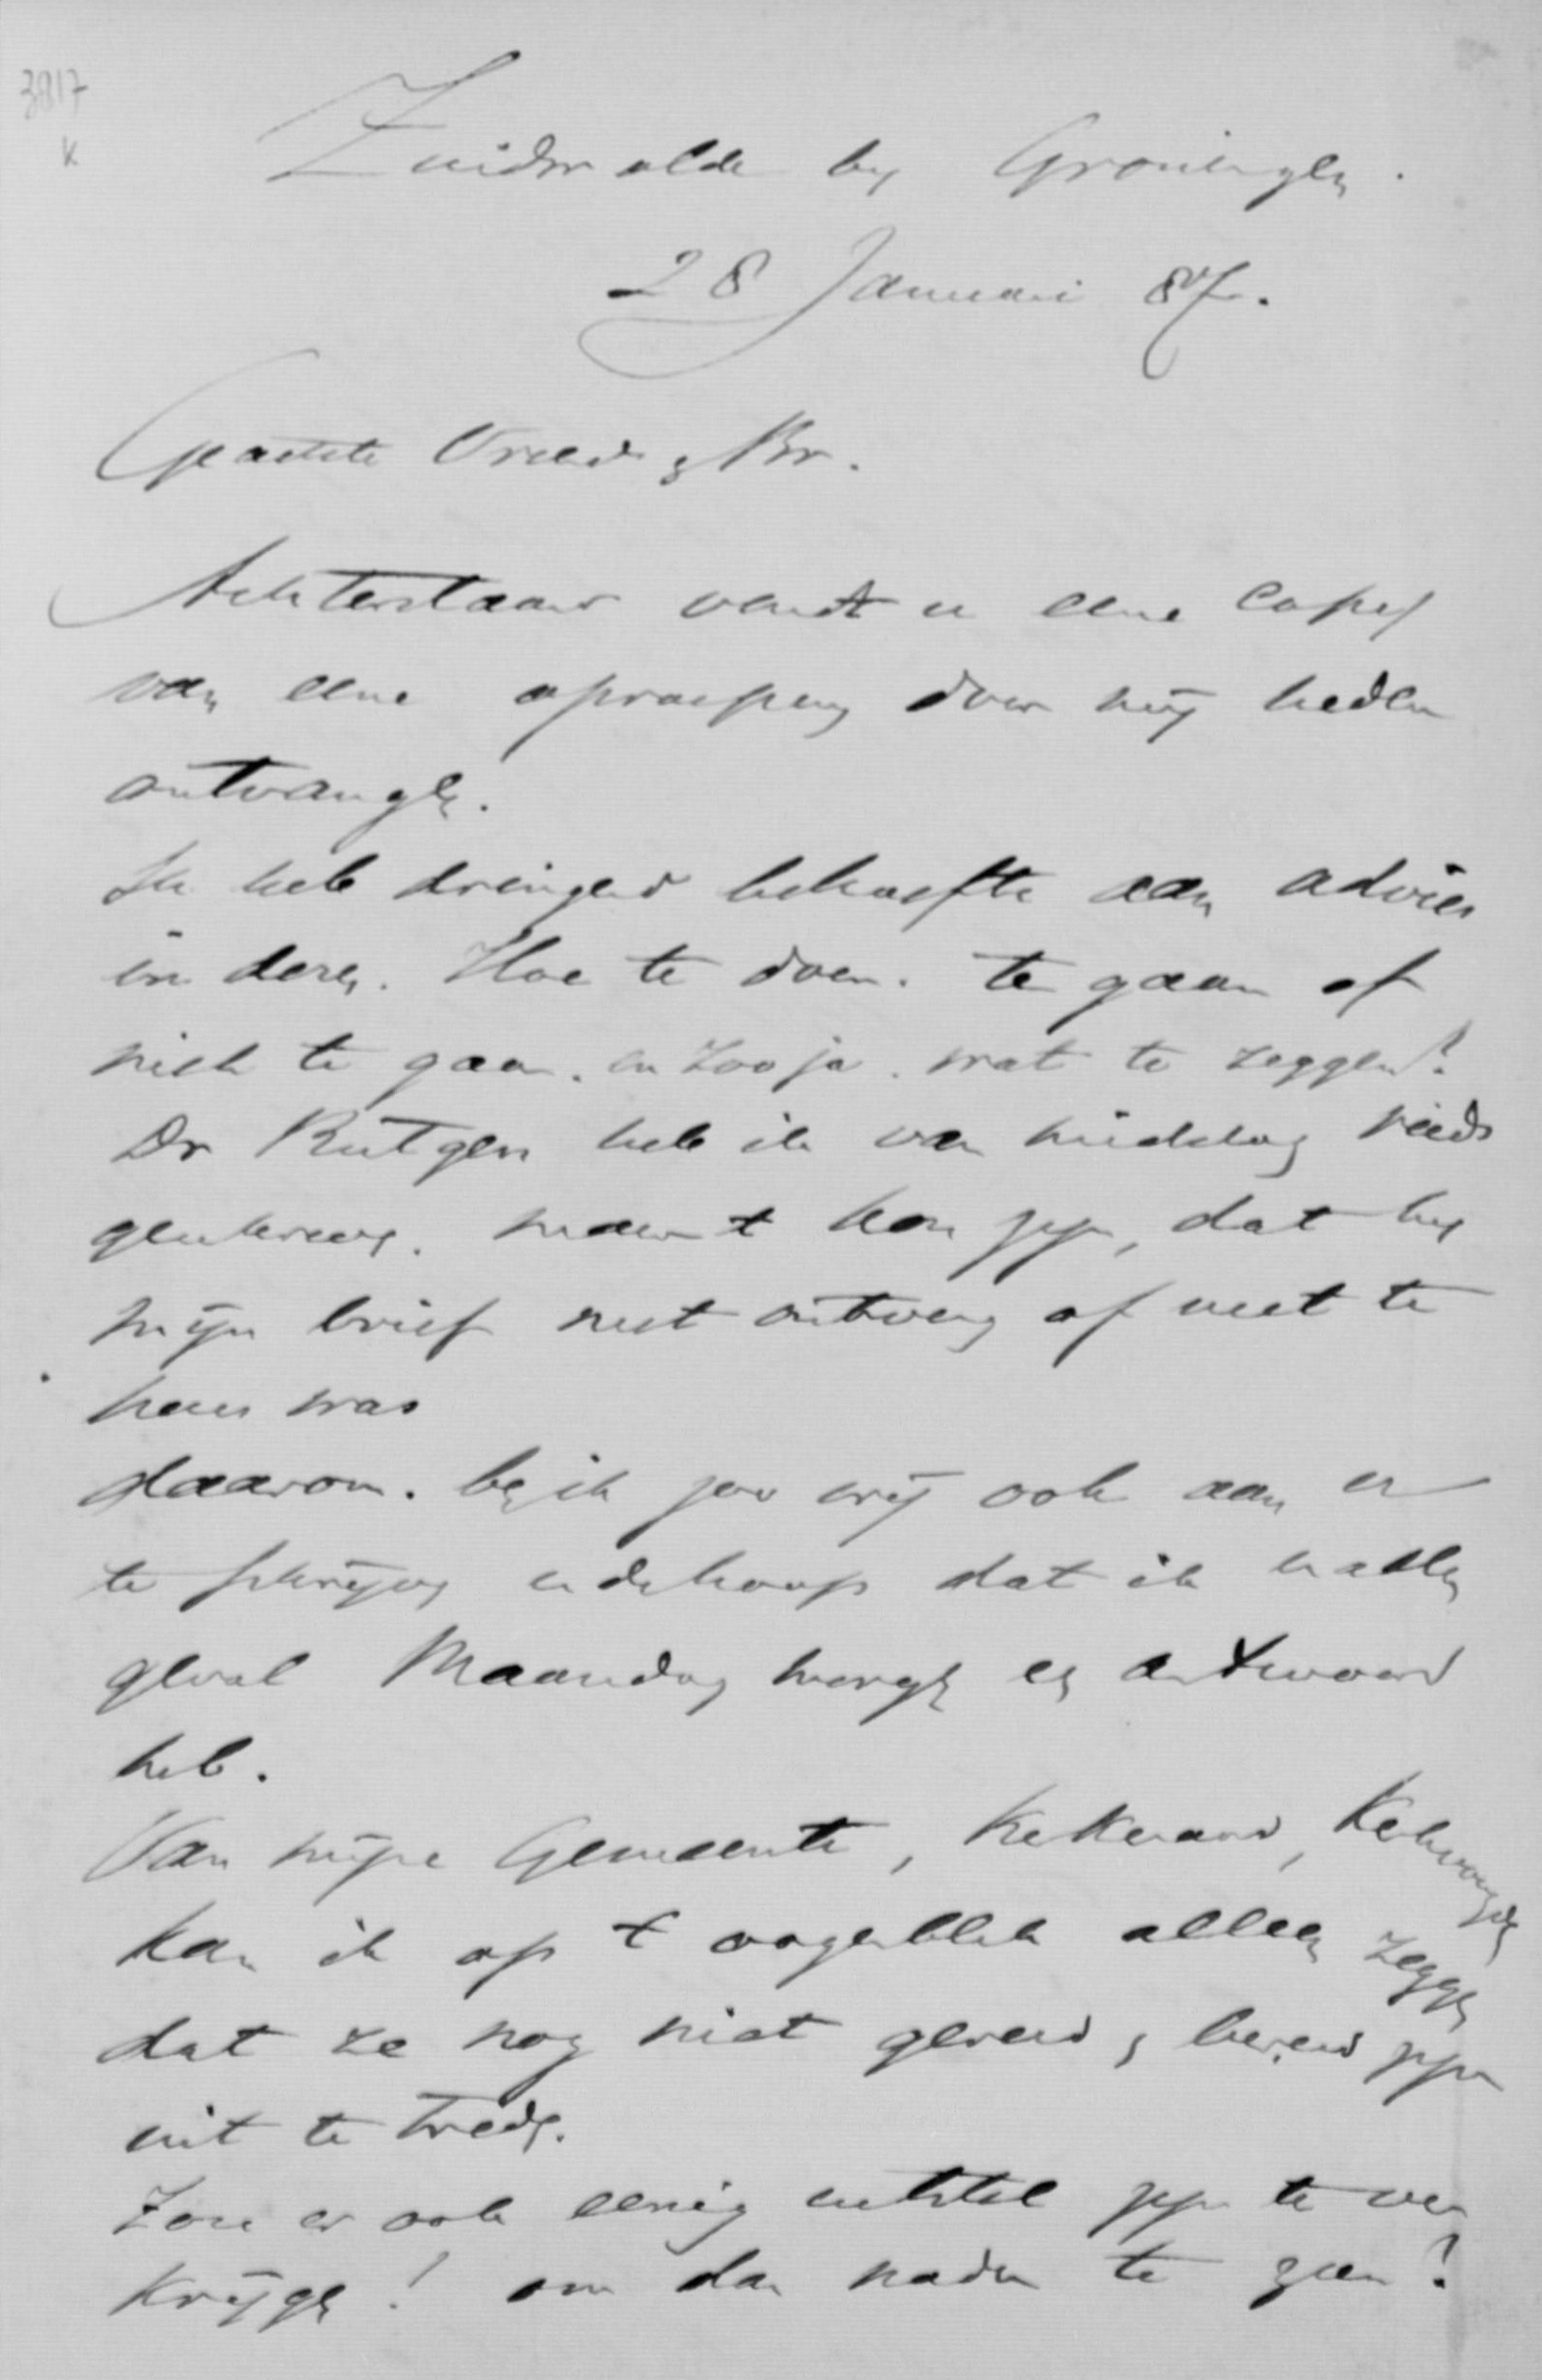 3817
K
Zuidwolde by Groningen.
28 Januari 87.
Geachte Vriend & Br.
Achterstaand vindt u eene copy
van eene oproeping door mij heden
ontvangen.
Ik heb dringend behoefte aan advies
in dezen. Hoe te doen. te gaan of
niet te gaan. en zoo ja. wat te zeggen?
Dr Rutgers heb ik van middag reeds
geschreven. maar t kon zijn, dat hy
mijn brief niet ontving of niet te
huis was
daarom. ben ik zoo vrij ook aan u
te schrijven in de hoop dat ik in allen
geval Maandag morgen een antwoord
heb.
Van mijne Gemeente, Kerkeraad, Kerkvoogden
kan ik op t oogenblik alleen zeggen
dat ze nog niet gereed & bereid zijn
uit te treden.
Zou er ook eenig uitstel zijn te ver
krijgen! om dan nader te zien?